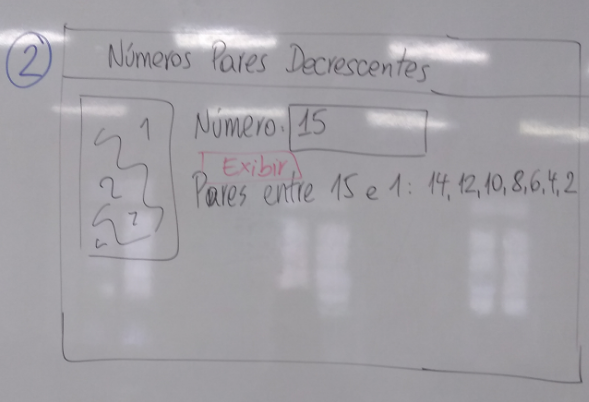 2
Números Pares Decrescentes
1
2
Número: 15
Exibir
Pares entre 15 e 1: 14, 12, 10, 8, 6, 4, 2